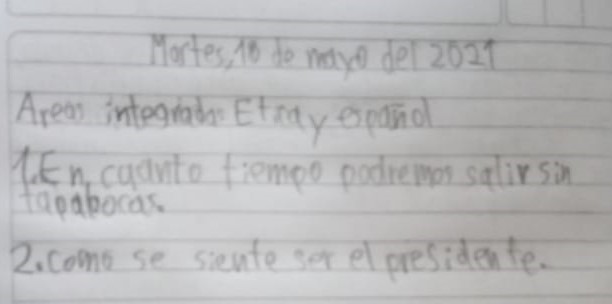 Martes, 18 de mayo del 2021
Areas integradas Etica y español
1. En cuanto tiempo podremos salir sin
tapabocas.
2. como se siente ser el presidente.